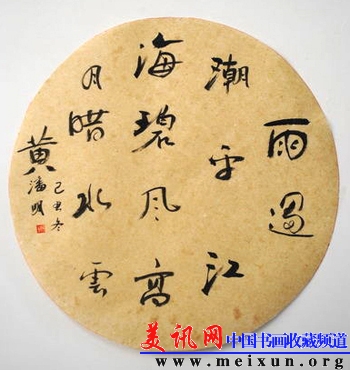 雨過
潮平江
海碧風高
月暗水雲
黄
己丑冬
潘明
美讯网 中国书画收藏频道
www.meixun.org